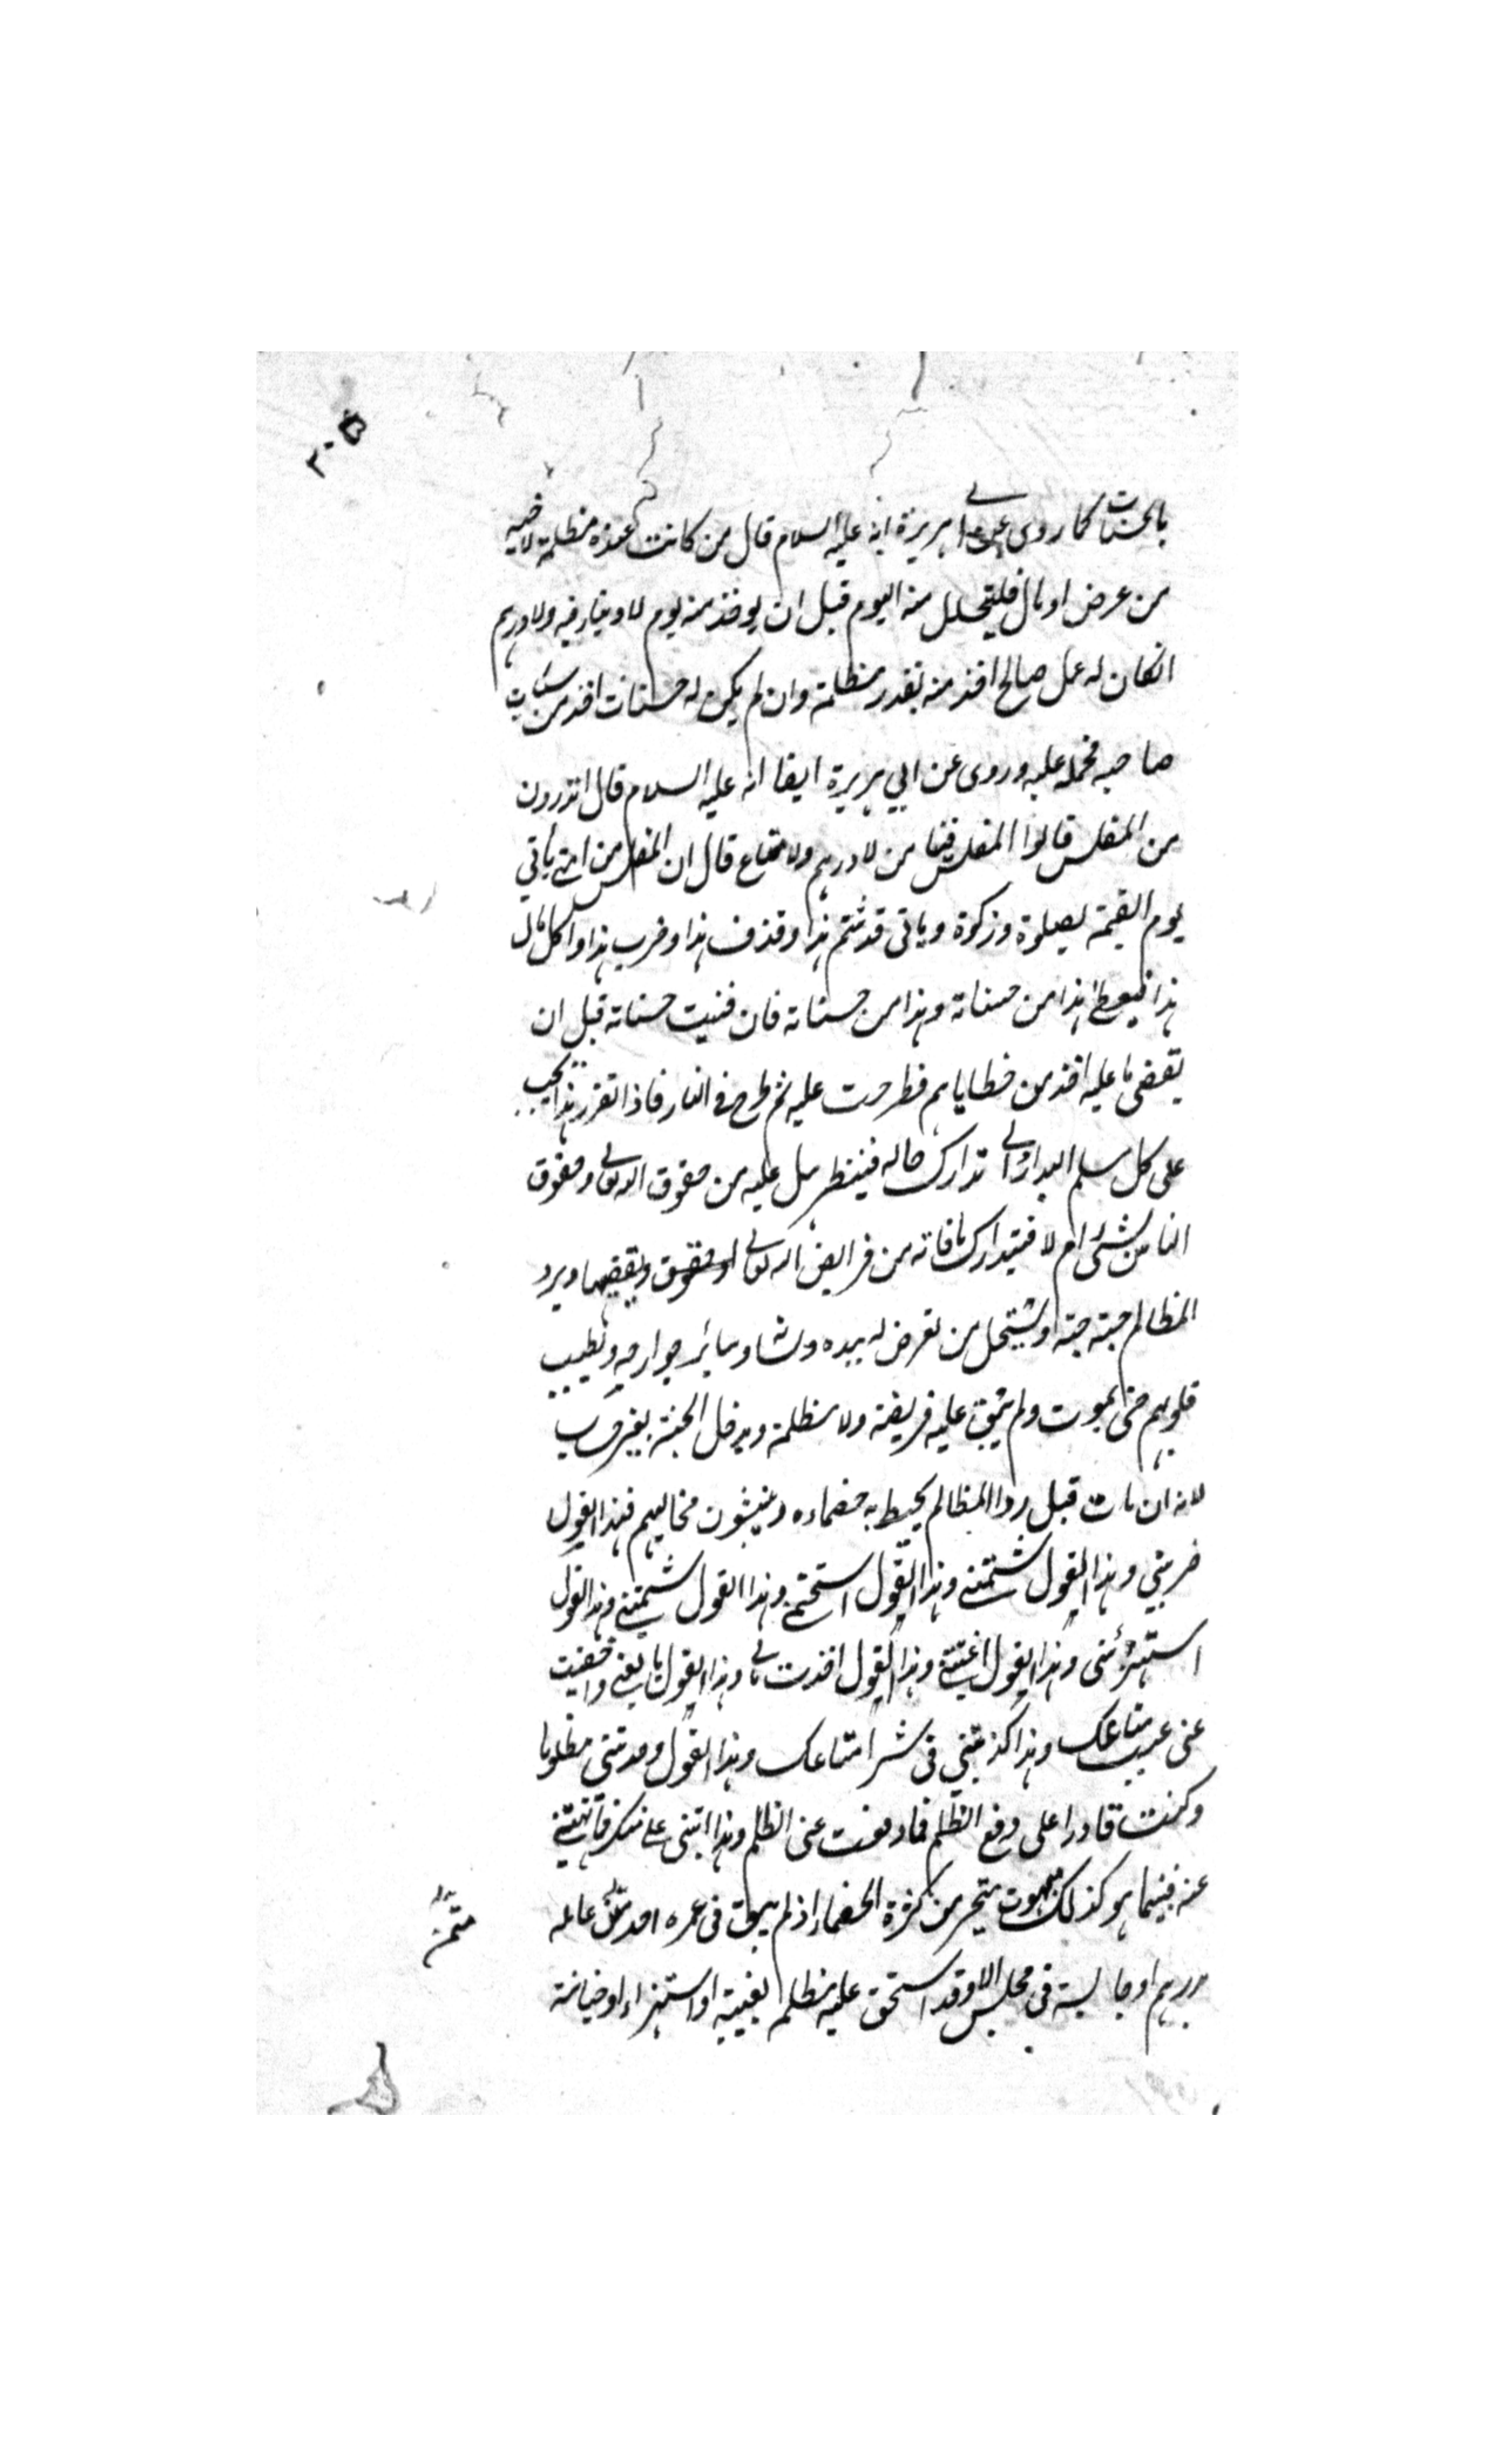 ٢٠٥
بالحسنات كما روى عن ابى هريرة انه عليه السلام قال من كانت عنده مظلمة لاخيه
من عرض او مال فليتحلل منه اليوم قبل ان يوخذ منه يوم لا دينار فيه ولا درهم
انكان له عمل صالح اخذ منه بقدر مظلمة وان لم يكن له حسنات اخذ من سيئات
صاحبه فحمله عليه وروى عن ابي هريرة ايضا انه عليه السلام قال اتدرون
من المفلس قالوا المفلس فينا من لا درهم ولا متاع قال ان المفلس من امتي يأتي
يوم القيمة بصلوة وزكوة وياتى قد شتم هذا وقذف هذا وضرب هذا واكل مال
هذا فيعطى هذا من حسناته وهذا من حسناته فان فنيت حسناته قبل ان
تقضى ما عليه اخذ من خطاياهم فطرحت عليه ثم طرح فى النار فاذا تقرر هذا يجب
على كل مسلم البدار الى تدارك حاله فينظر هل عليه من حقوق الله تعالى وحقوق
الناس شئ ام لا فيتدارك ما فاته من فرايض الله تعالى ويقضيها ويرد
المظالم حبته حبته ويستحل من تعرض له بيده ولسانه وسائر جوارحه ويطيب
قلوبهم حتى يموت ولم يبق عليه فريضة ولا مظلمة ويدخل الجنة بغير حساب
لانه ان مات قبل رد المظالم يحيط به خصماءه وينشبون مخاليبهم فهذا يقول
ضربتني وهذا يقول شتمتني وهذا يقول وهذا القول شتمتني وهذا القول
استهزئتنى وهذا يقول اغتبتني وهذا يقول اخذت مالى وهذا يقول بايعتني واخفيت
عنى عيب متاعك وهذا كذبتني فى متاعك وهذا يقول وجدتنى مظلوما
وكنت قادرا على دفع الظلم فما دفعت عنى الظلم وهذا على منكر فما نهيتني
عنه فبينما هو كذلك مبهوت متحير من كثرة الخصماء اذ لم يبق فى عمره احد عامله
متمن
بدرهم او جالسه فى مجلس الا وقد استحق عليه مظلمه بغيبة او استهزاء او خيانة